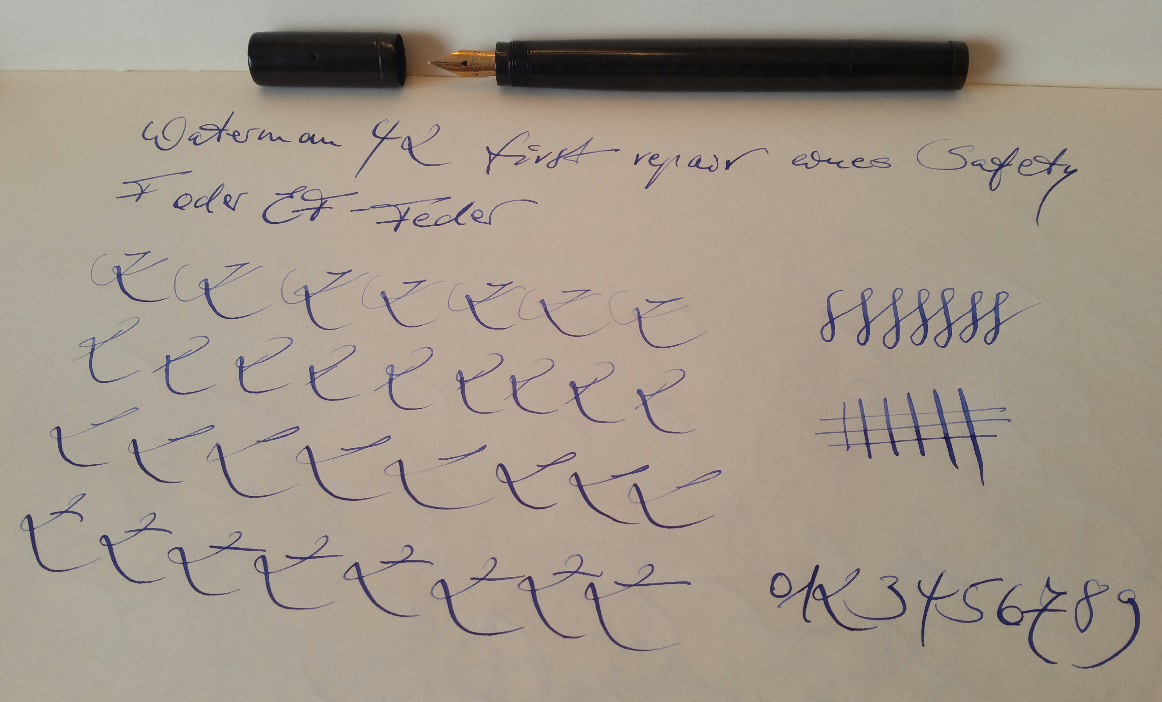 Waterman 42 first repair eines Safety
F oder EF-Feder
0123456789